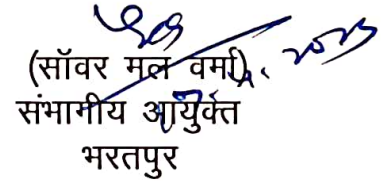 (सॉवर मल वर्मा)
संभागीय आयुक्त
भरतपुर